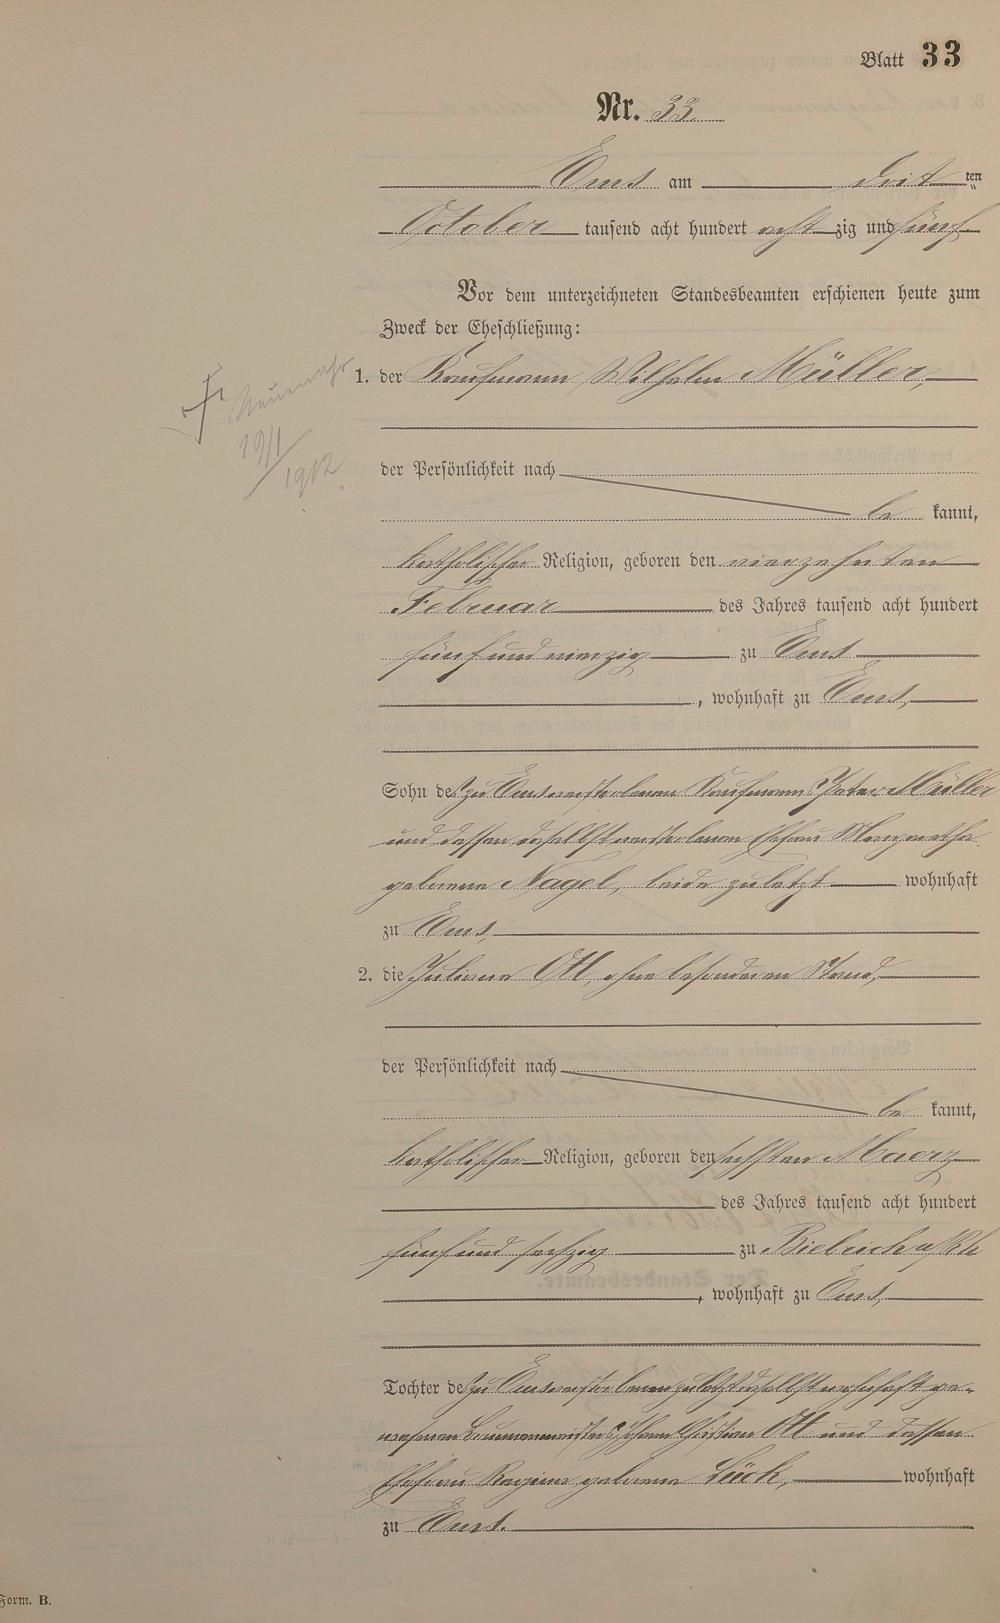 Blatt 33
Nr. 33.
Ems am dritten
October tausend acht hundert achtzig und fünf
Vor dem unterzeichneten Standesbeamten erschienen heute zum
Zweck der Eheschließung:
1. der Kaufmann Wilhelm Müller,
† Neuenahr
19/1
1912
der Persönlichkeit nach
bekannt,
katholischer Religion, geboren den vierzehnten
Februar des Jahres tausend acht hundert
fünf und vierzig zu Ems
, wohnhaft zu Ems,
Sohn des zu Ems verstorbenen Kaufmanns Peter Müller
und dessen daselbst verstorbenen Ehefrau Margaretha
geborene Nagel, beide zuletzt wohnhaft
zu Ems,
2. die Juliane Ott, ohne besonderen Stand,
der Persönlichkeit nach
bekannt,
katholischer Religion, geboren den sechsten Maerz
des Jahres tausend acht hundert
fünf und sechzig zu Biebrich a/Rh
, wohnhaft zu Ems,
Tochter des zu Ems verstorbenen zuletzt daselbst wohnhaft ge-
wesenen Brunnenmeisters Johann Christian Ott und dessen
Ehefrau Regina geborene Lück, wohnhaft
zu Ems.
Form. B.